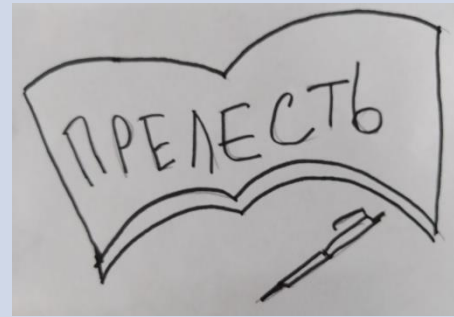 ПРЕЛЕСТЬ